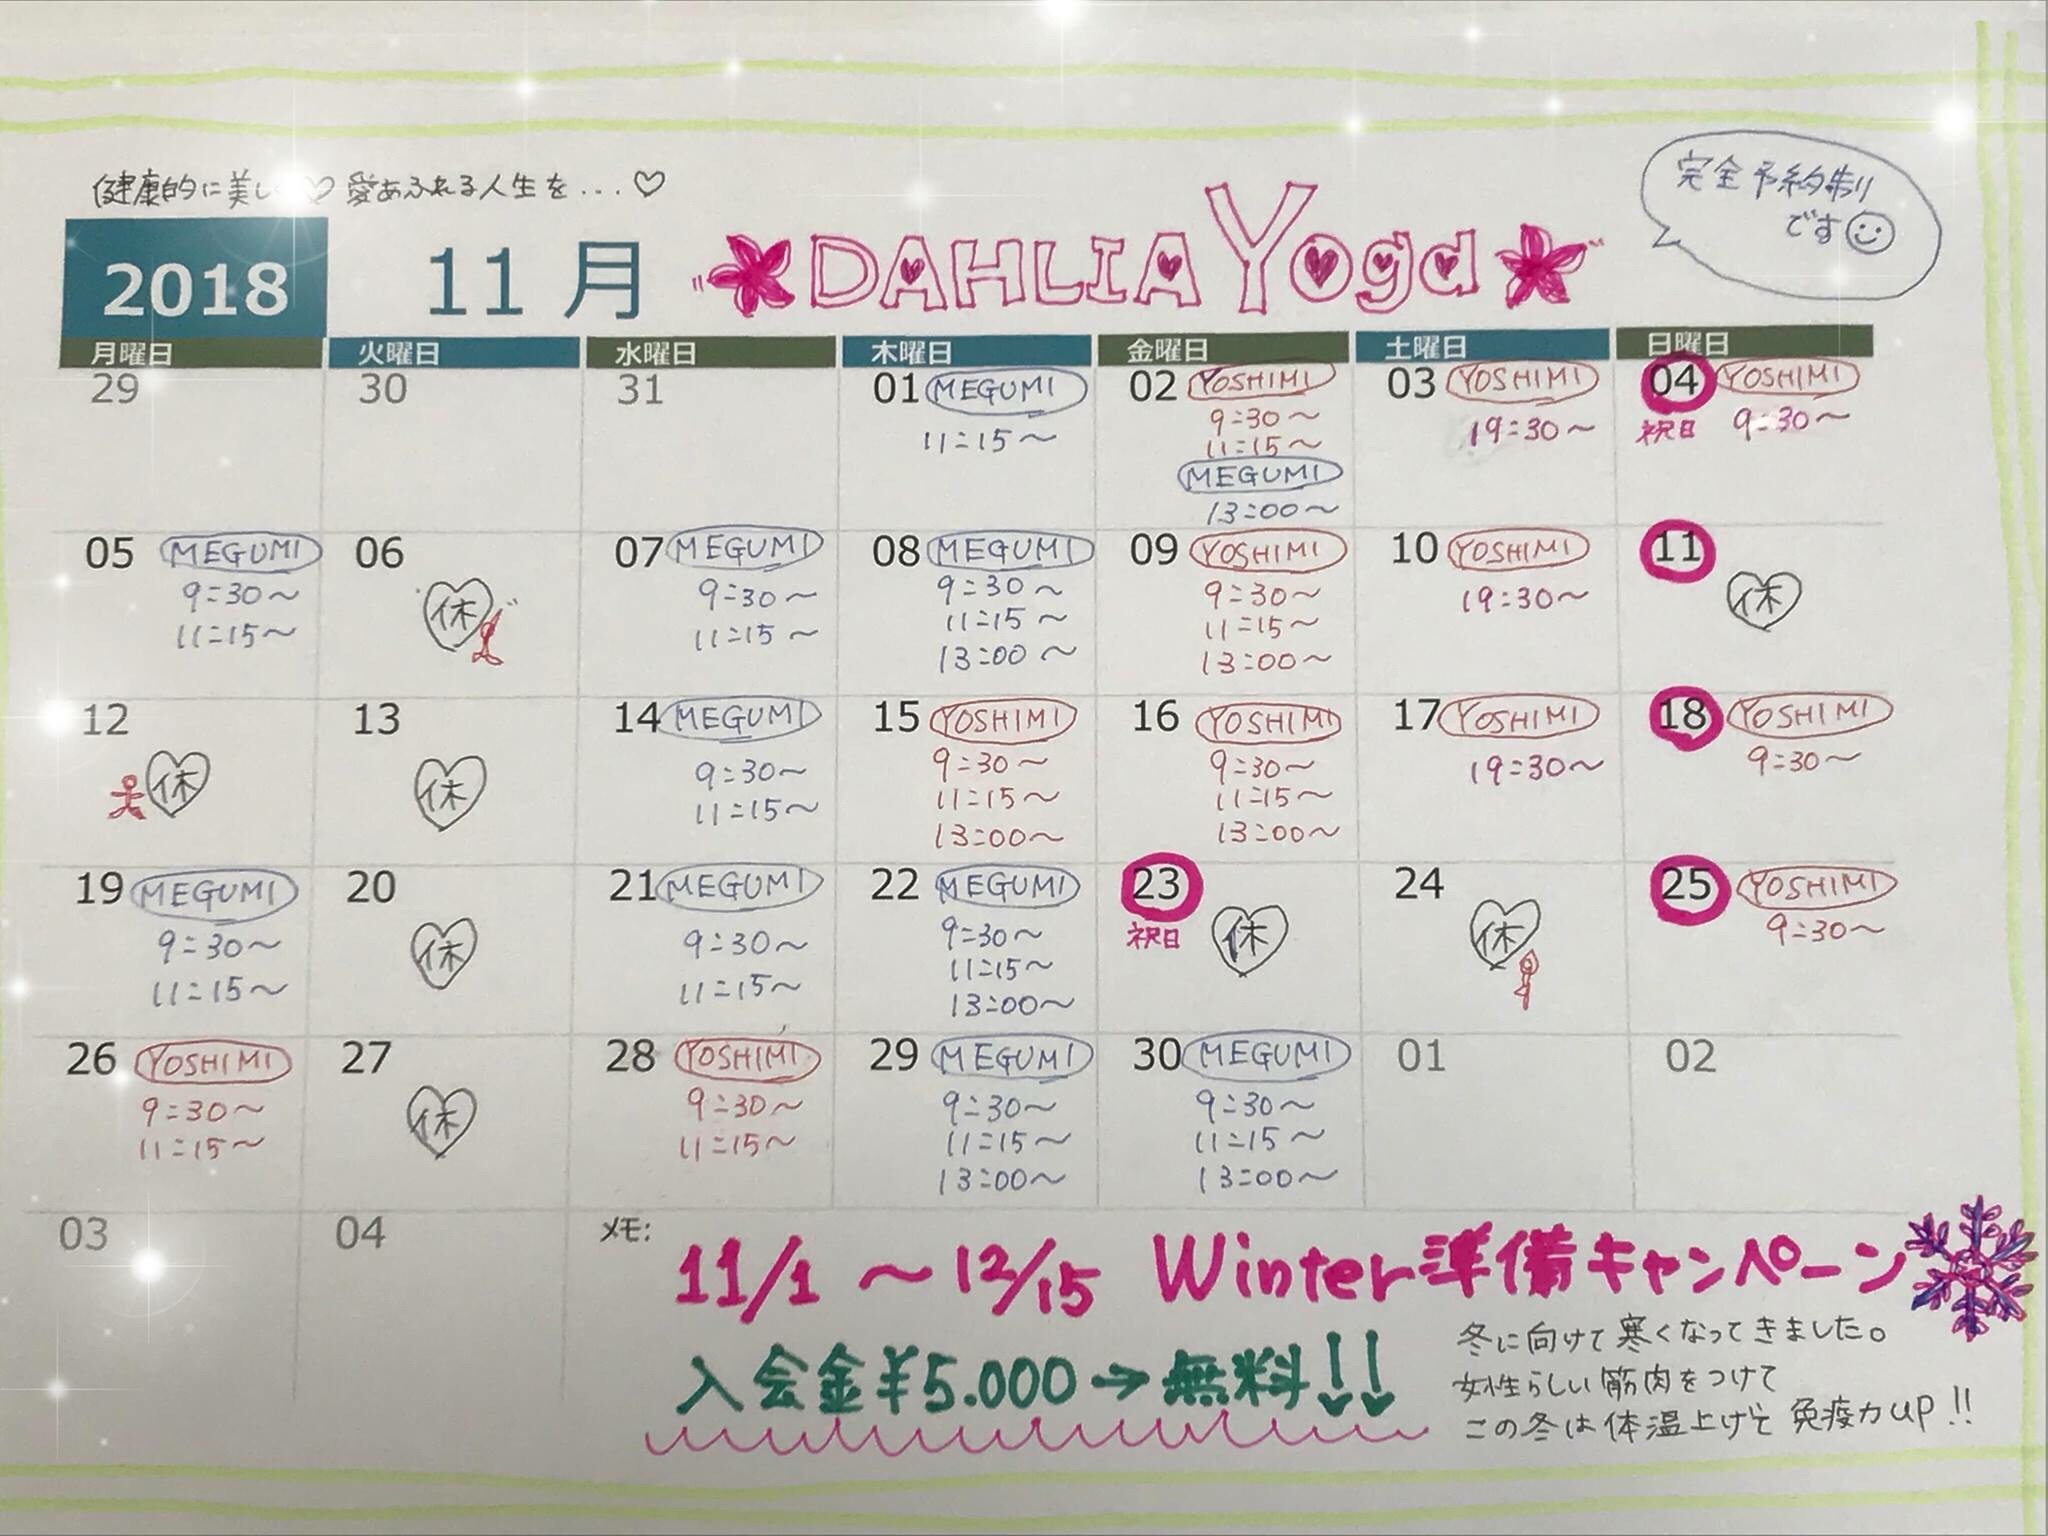 健康的に美しく♡愛あふれる人生を...♡
完全予約制
です
2018
11 月
DAHLIA Yoga
月曜日 火曜日 水曜日 木曜日 金曜日 土曜日 日曜日
29
30
31
01 MEGUMI
11:15～
02 YOSHIMI
9:30～
11:15～
MEGUMI
13:00～
03 YOSHIMI
19:30～
04 YOSHIMI
祝日 9:30～
05 MEGUMI
9:30～
11:15～
06
休
07 MEGUMI
9:30～
11:15～
08 MEGUMI
9:30～
11:15～
13:00～
09 YOSHIMI
9:30～
11:15～
13:00～
10 YOSHIMI
19:30～
11
休
12
休
13
休
14 MEGUMI
9:30～
11:15～
15 YOSHIMI
9:30～
11:15～
13:00～
16 YOSHIMI
9:30～
11:15～
13:00～
17 YOSHIMI
19:30～
18 YOSHIMI
9:30～
19 MEGUMI
9:30～
11:15～
20
休
21 MEGUMI
9:30～
11:15～
22 MEGUMI
9:30～
11:15～
13:00～
23
祝日 休
24
休
25 YOSHIMI
9:30～
26 YOSHIMI
9:30～
11:15～
27
休
28 YOSHIMI
9:30～
11:15～
29 MEGUMI
9:30～
11:15～
13:00～
30 MEGUMI
9:30～
11:15～
13:00～
01
02
03
04
メモ:
11/1 ～12/15 Winter準備キャンペーン
入会金¥5.000→無料!!
冬に向けて寒くなってきました。
女性らしい筋肉をつけて
この冬は体温上げて免疫力UP!!